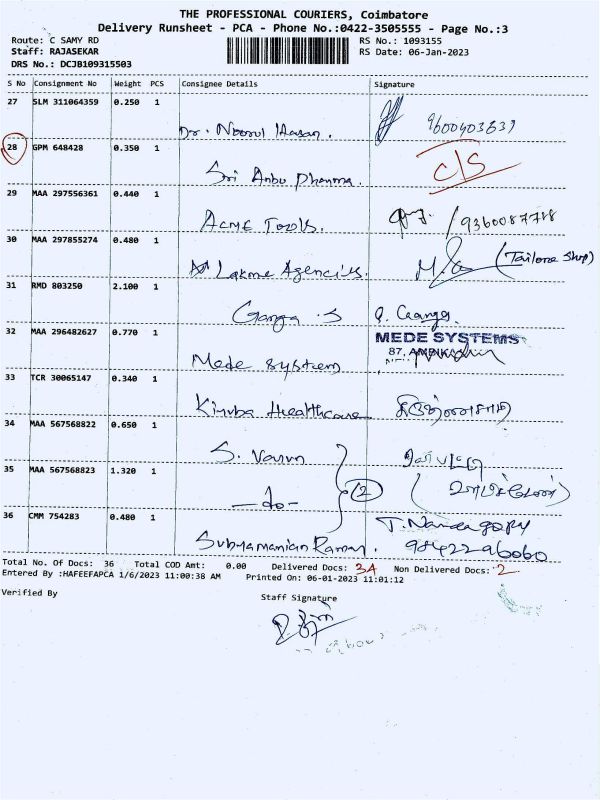 THE PROFESSIONAL COURIERS, Coimbatore
Delivery Runsheet - PCA - Phone No.:0422-3505555 - Page No.:3
Route: C SAMY RD RS No.: 1093155
Staff: RAJASEKAR RS Date: 06-Jan-2023
DRS No.: DCJB109315503
S No Consignment No Weight PCS Consignee Details Signature
27 SLM 311064359 0.250 1
Dr. Noorul Hasan.
28 GPM 648428 0.350 1
Sri Anbu Pharma. C/S
29 MAA 297556361 0.440 1
ACME Tools. / 9360087718
30 MAA 297855274 0.480 1
Lakme Agencies. (Tailore Shop)
31 RMD 803250 2.100 1
Ganga .S Q. Ganga
32 MAA 296482627 0.770 1 MEDE SYSTEMS
Mede System 87,
33 TCR 30065147 0.340 1
Kiruba Healthcare
34 MAA 567568822 0.650 1
S. Varun
35 MAA 567568823 1.320 1
-do- 2
36 CMM 754283 0.480 1 T. Nandagopy
Subramanian Raman. 9842296060
Total No. Of Docs: 36 Total COD Amt: 0.00 Delivered Docs: 34 Non Delivered Docs: 2
Entered By :HAFEEFAPCA 1/6/2023 11:00:38 AM Printed On: 06-01-2023 11:01:12
Verified By Staff Signature